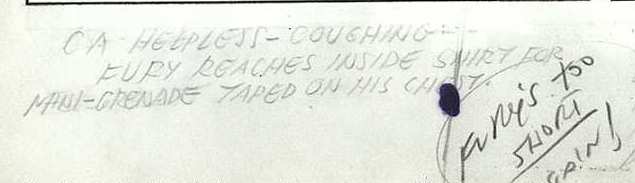 CA HELPLESS- COUGHING--
FURY REACHES INSIDE SHIRT FOR
MINI-GRENADE TAPED ON HIS CHEST.
FURY'S TOO
SHORT